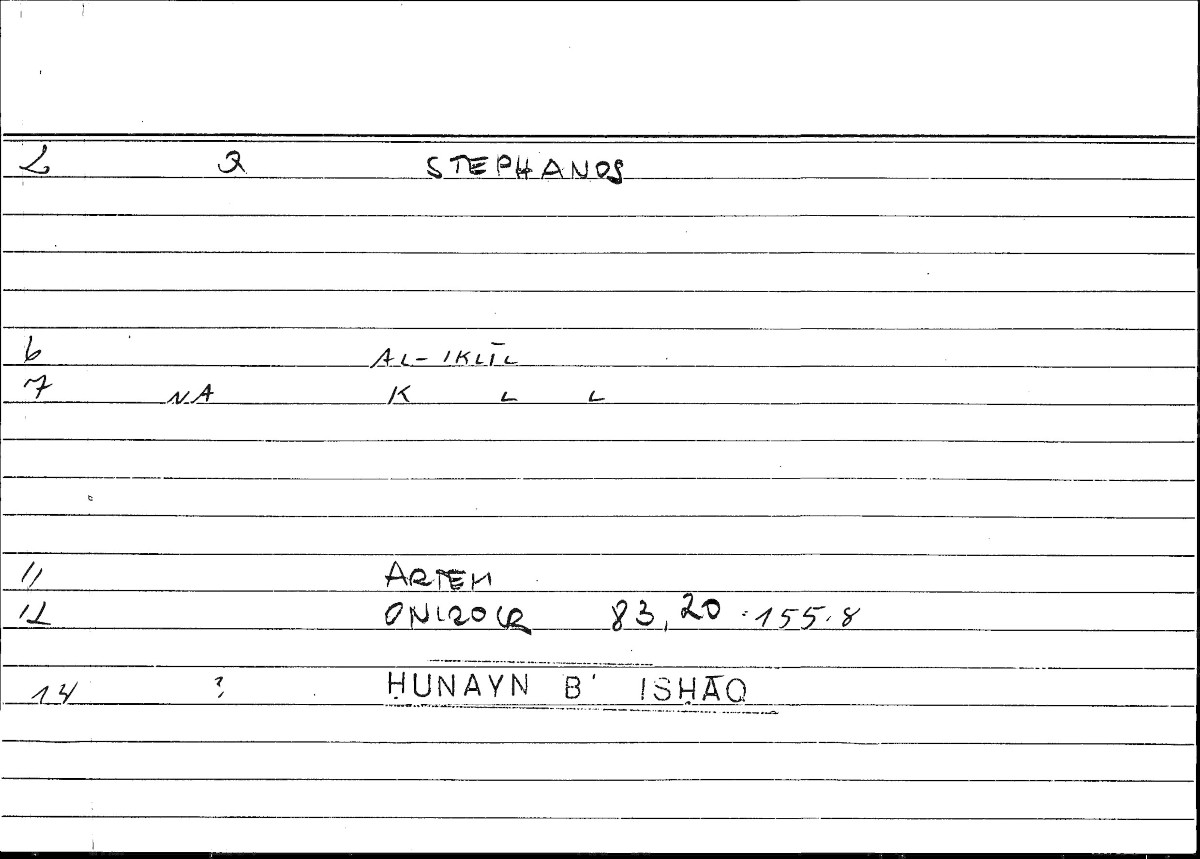 2 Q STEPHANOS
6 AL-IKLĪL
7 NA K L L
11 ARTEM
12 ONIROCR 83,20 : 155.8
14 ? ḤUNAYN B' ISḤĀQ